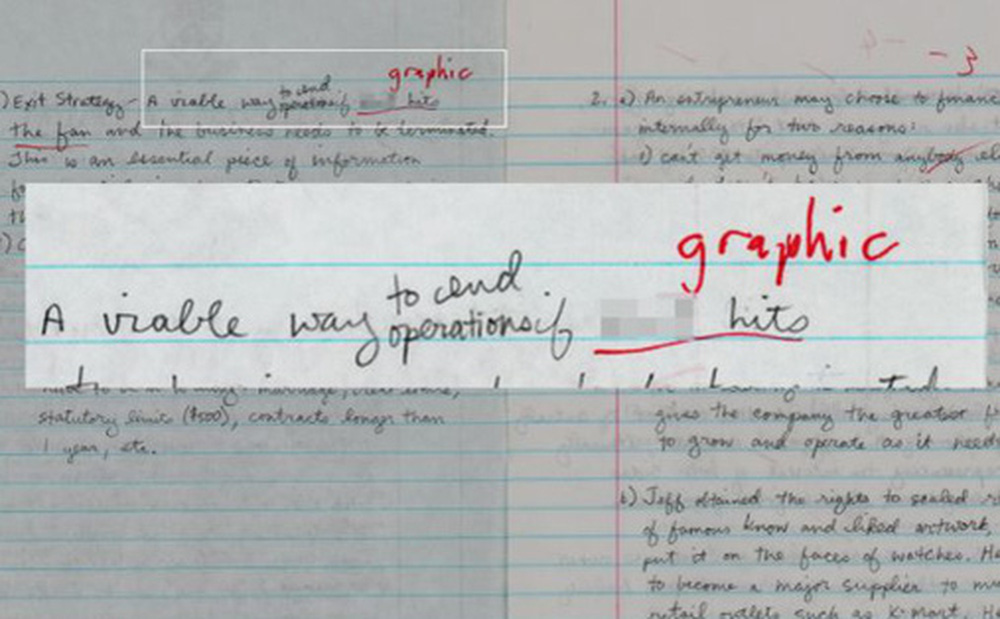 graphic
) Exit Strategy - A viable way to end operations if hits
the fan and the business needs to be terminated.
This is an essential piece of information
graphic
A viable way to end operations if hits
statutory limit ($500), contracts longer than
1 year, etc.
-3
2. a) An entrepreneur may choose to financ
internally for two reasons:
1) can't get money from anybody el
gives the company the greatest
to grow and operate as it need
b) Jeff obtained the rights to
of famous know and liked artwork,
put it on the faces of watches. He
to become a major supplier to
retail outlets such as K-mart. He